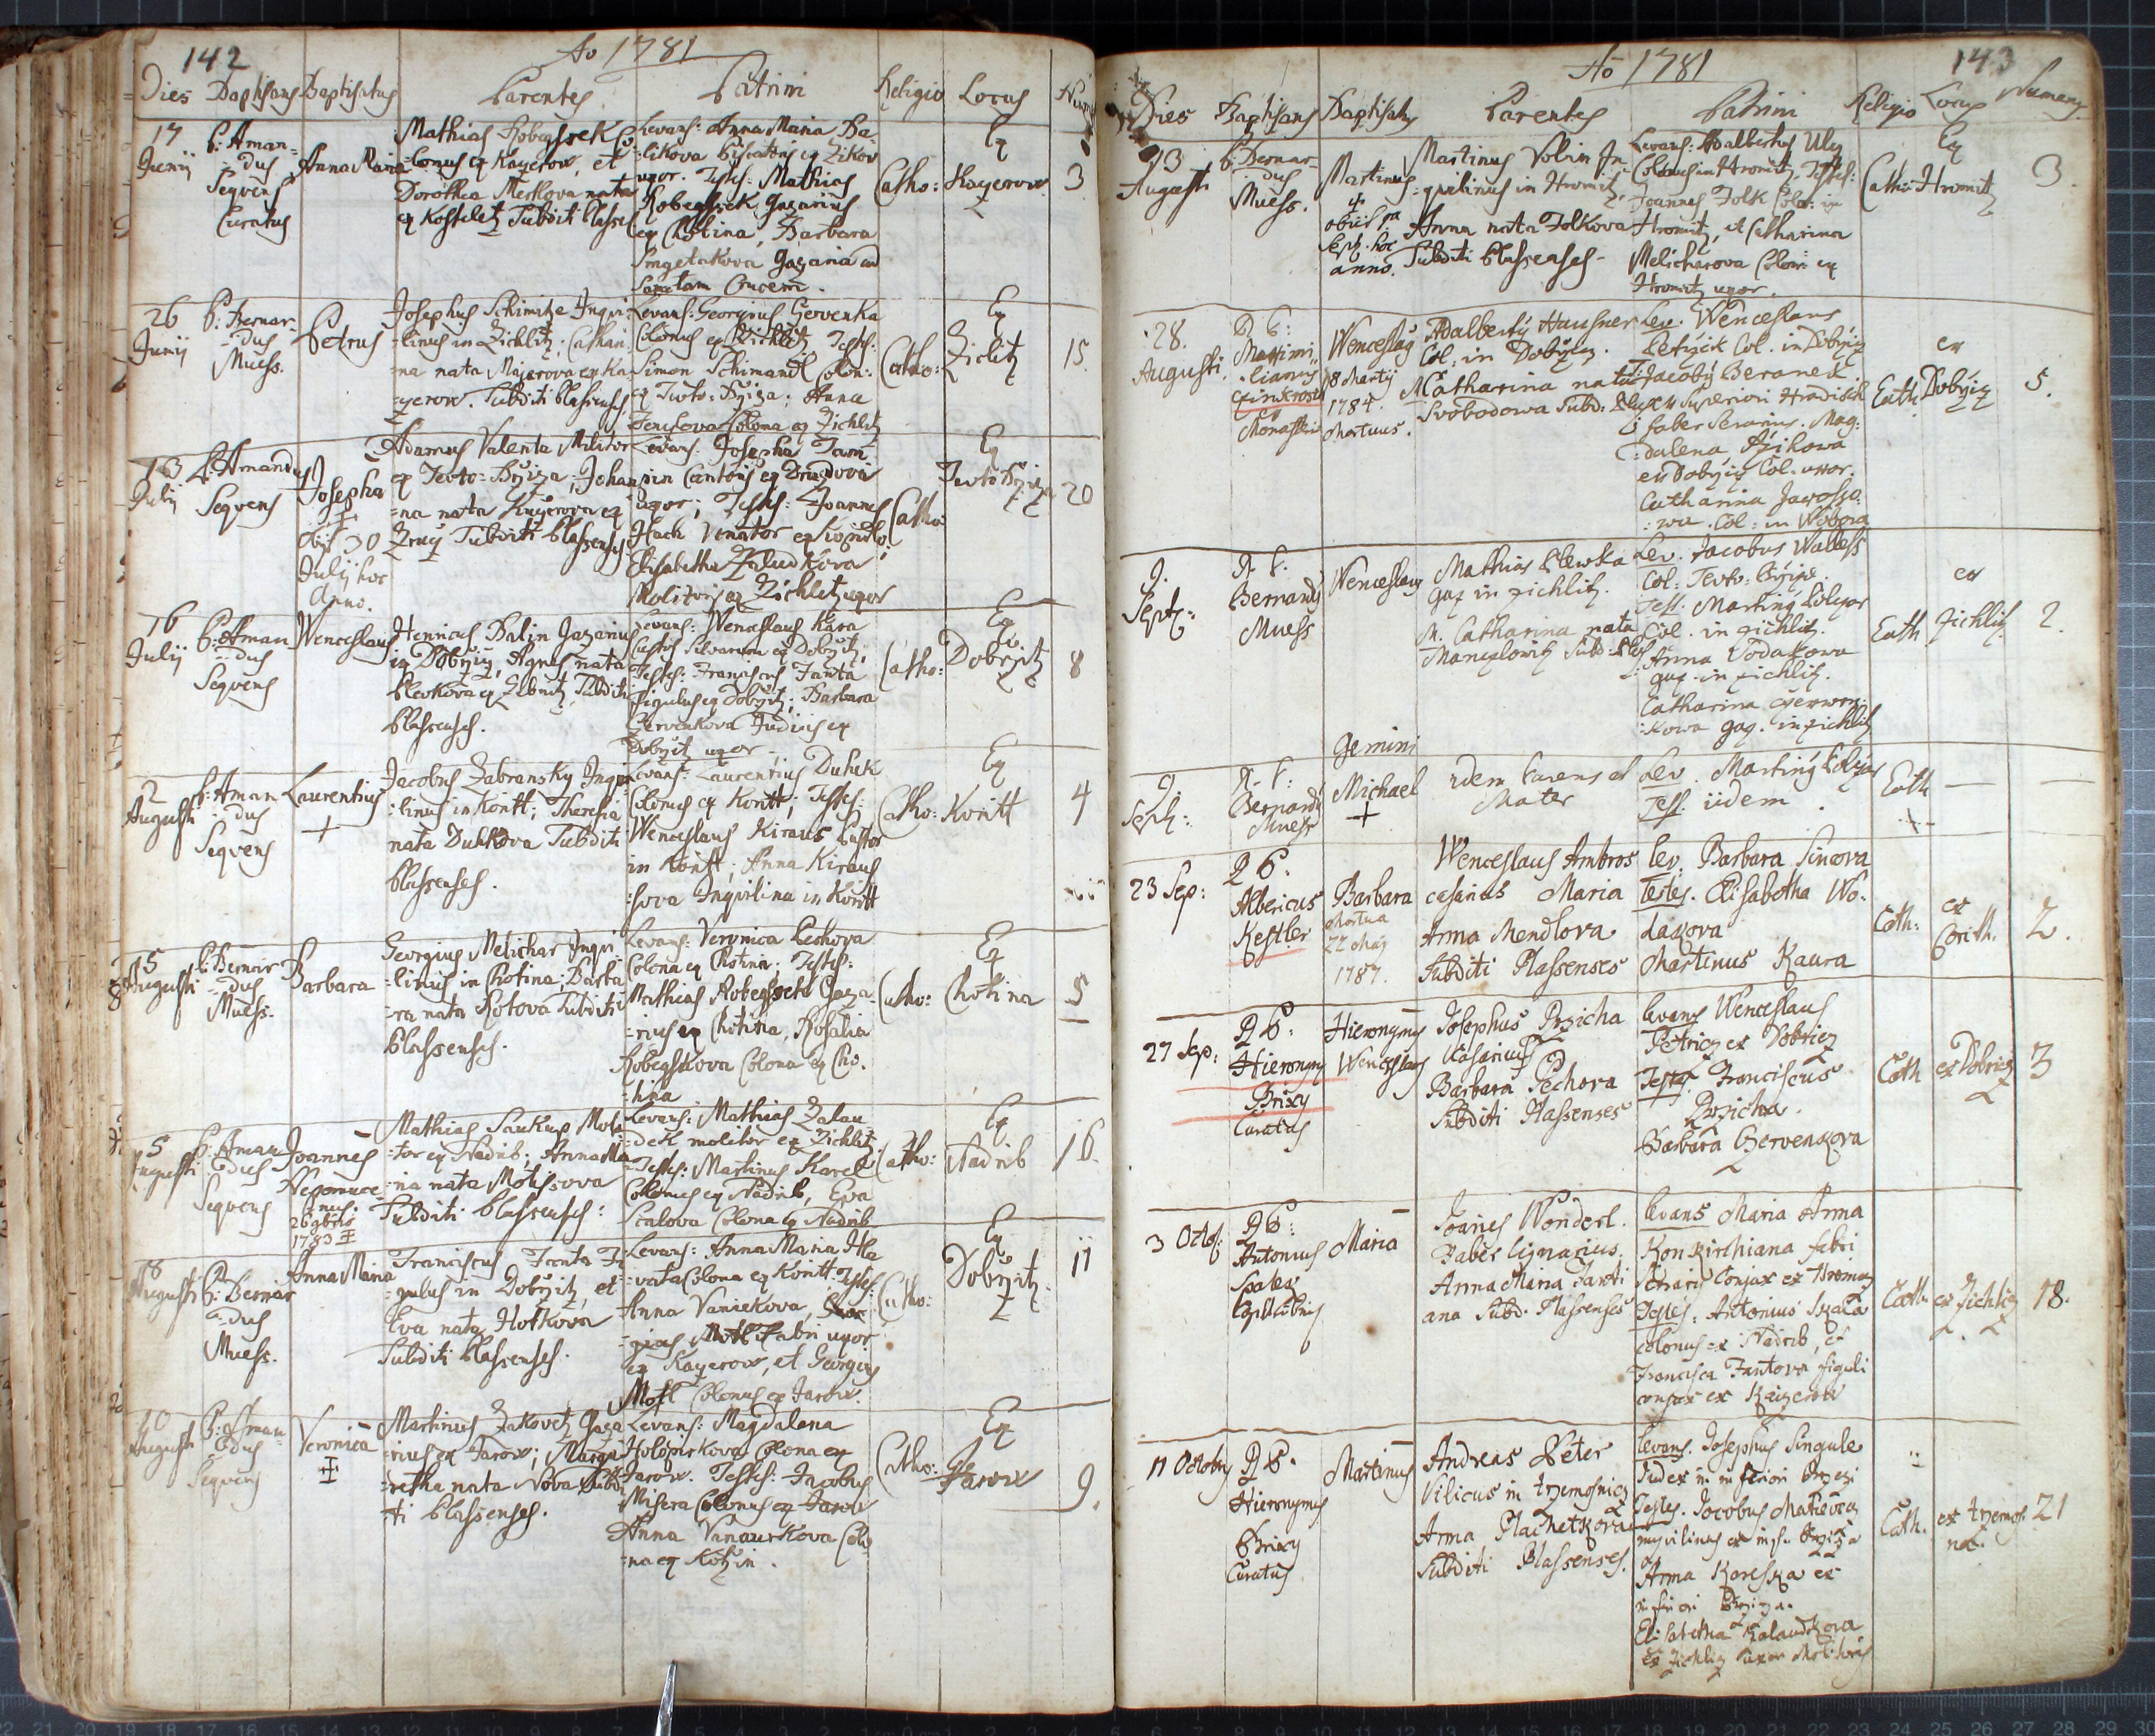 142
Ao 1781
Dies Baptisans Baptisatus Parentes Patrini Religio Locus
17 Junij
P: Aman=
=dus
Seqvens
Curatus
Anna Maria
Mathias Kobegssek Co=
=lonus ex Kaÿerow, et
Dorothea nata
ex Kosseletz Subditi Plassens
Levans: Anna Maria Ba=
=likova
uxor. Testes: Mathias
Robegssek Gazarius
ex Chotina, Barbara
Smgetakova Gazaria ad
Sanctam Crucem.
Catho:
Ex
Kayerow
3
26
Junij
P: Bernar=
=dus
Muess.
Petrus
Josephus Schimitze Inqvi=
=linus in Zichlitz; Cathari=
=na nata Majerova ex Ka=
=yerow. Subditi Plassenses
Levans: Georgius Gervenka
Colonus ex Zichlitz Testes:
Simon Schimandl Colon:
ex Teuto: Bržiza; Anna
Colona ex Zichlitz
Catho:
Ex
Ziclitz
15
13
Julij
P: Amandus
Seqvens
Josepha
‡
obijt 30
Julij hoc
Anno.
Adamus Valenta Molitor
ex Teuto=Bržiza; Johan=
=na nata Kuÿerova ex
Zruÿ Subditi Plassenses
Levans: Josepha
Cantoris ex Druzdova
uxor; Testes: Joannes
Hack Venator
Elisabetha Zaludkova
Molitoris ex Zichletz uxor
Catho:
Ex
Teuto Bržiza
20
16
Julij
P: Aman=
=dus
Seqvens
Wenceslaus
Henricus Balin Gazarius
in Dobržitz, Agnes nata
Plevkova ex Subditi
Plassenses.
Levans: Wenceslaus Kara
Custos Silvarum ex Dobržitz,
Testes: Franciscus Fanta
figulus ex Dobržitz; Barbara
Czervenkova Judicis ex
Dobržitz uxor.
Catho:
Ex
Dobržitz
8
2
Augusti
P: Aman=
=dus
Seqvens
Laurentius
+
Jacobus Zabransky Inqvi=
=linus in Koritt; Theresia
nata Duhkova Subditi
Plassenses.
Levans: Laurentius Duhek
Colonus ex Koritt; Testes:
Wenceslaus Kiraus Pastor
in Koritt; Anna Kiraus=
=sova Inqvilina in Koritt
Catho:
Ex
Koritt
4
5
Augusti
P: Bernar=
=dus
Muess.
Barbara
Georgius Melichar Inqvi=
=linus in Chotina; Barba=
=ra nata Kotova Subditi
Plassenses.
Levans: Veronica Pechova
Colona ex Chotina; Testes:
Mathias Robegssek Gaza=
=rius ex Chotina, Rosalia
Robegskova Colona ex Cho=
=tina
Catho:
Ex
Chotina
5
5
Augusti
P: Aman=
=dus
Seqvens
Joannes
Nepomuce=
=nus.
26 9bris
1783 ‡
Mathias Saukup Moli=
=tor ex Nadrib; Anna Ma=
=ria nata Motisova
Subditi Plassenses:
Levans: Mathias Zalau=
=dek molitor ex Zichlitz
Testes: Martinus Karel
Colonus ex Nadrib, Eva
Scalova Colona ex Nadrib
Catho:
Ex
Nadrib
16
8
Augusti
P: Bernar=
=dus
Muess.
Anna Maria
Franciscus Fanta Fi=
=gulus in Dobržitz, et
Eva nata Hotkova
Subditi Plassenses.
Levans: Anna Maria Hla=
=vata Colona ex Koritt. Testes:
Anna Vaniekova,
Motl Fabri uxor
ex Kayerow, et Georgius
Motl Colonus ex Jarow.
Catho:
Ex
Dobržitz
11
10
Augusti
P: Aman=
=dus
Seqvens
Veronica
‡
Martinus Zakovetz Gaza=
=rius ex Jarow; Marga=
=retha nata Nova Subdi=
=ti Plassenses.
Levans: Magdalena
Holopirkova Colona ex
Jarow. Testes: Jacobus
Misera Colonus ex Jarow
Anna Vanaurkova Colo=
=na ex Kotzin.
Catho:
Ex
Jarow
9.
143
Ao 1781
Dies Baptisans Baptisatus Parentes Patrini Religio Locus Numerus
13
Augusti
P: Bernar=
=dus
Muess.
Martinus
‡
obiit
Sept. hoc
anno.
Martinus Volin In=
=qvilinus in Hromitz,
Anna nata Folkova
Subditi Plassenses
Levans: Adalbertus Uleÿ
Colonus in Hromitz. Testes:
Joannes Folk Colo: in
Hromitz, et Catharina
Melicharova Coloni ex
Hromitz uxor.
Catho:
Ex
Hromitz
3.
28.
Augusti.
R P:
Maximi=
=lianus
Monasterii
Wenceslaus
8 Martij
1784.
Mortuus.
Adalbertus Hausner
Col: in Dobržicz.
M. Catharina nata
Svobodowa Subd: Plass
Lev. Wenceslaus
Petržick Col. in Dobržicz
T. Jacobus Beranek
ex Superiori Hradisch
faber Serarius. Mag=
=dalena Ržikowa
ex Dobržicz Col. uxor.
Catharina Jarosso=
=wa Col: in Wobora
Cath
ex
Dobržicz
5.
9.
Septr:
R. P:
Bernardus
Muess
Wenceslaus
Mathias Plewka
Gaz in Zichlitz.
M. Catharina nata
Maneplowitz Subd: Plass.
Lev. Jacobus Waless
Col: Teuto: Bržize
Test. Martinus Bolÿar
Col. in Zichlitz.
Anna Vodakowa
gaz. in Zichlitz.
Catharina Czerwen=
=kowa gaz. in Zichlitz
Cath
ex
Zichlitz
2.
Gemini
9.
Sept:
R. P:
Bernardus
Muess
Michael
+
idem Parens et
Mater
Lev. Martinus Bolÿar
Test. iidem.
Cath
—
—
23 Sep:
R P:
Albericus
Kestler
Barbara
Mortua
22 Maÿ
1787.
Wenceslaus Ambros
casarius Maria
Anna Mendlova
Subditi Plassenses
Lev. Barbara Sincova
Testes. Elisabetha Wo=
dakova
Martinus Kaura
Cath:
ex
Corith.
2.
27 Sep:
R P:
Hieronymus
Brixy
Curatus
Hieronymus
Wenceslaus
Josephus Przicha
Casarius
Barbara Pechova
Subditi Plassenses
Levans Wenceslaus
Petricz ex Dobricz
Testes Franciscus
Przicha.
Barbara Czervenkova
Cath
ex Dobricz
3
3 Octob:
R P:
Antonius
Spaleg
Maria
Joannes Wonderl.
Faber lignarius.
Anna Maria Fanti
ana Subd. Plassenses
Levans Maria Anna
Konkirchiana fabri
Serarii Conjux ex
Testes. Antonius Skala
colonus ex Nadrib, et
Francisca Fantova figuli
conjux ex Kaizerow
Cath
ex Zichlitz
18.
11 Octobris
R P.
Hieronymus
Brixy
Curatus
Martinus
Andreas Peter
Vilicus in Tzemosnicz
Anna Plachetkova
Subditi Plassenses.
Levans. Josephus Singule
Judex in inferiori Brzezi
Testes. Jacobus
inqvilinus ex inf.. Brziza
Anna Koreska ex
inferiori Brziza.
Elisabetha Zalaudkova
ex Zichlitz uxor Molitoris
Cath.
ex Tzemos=
na.
21